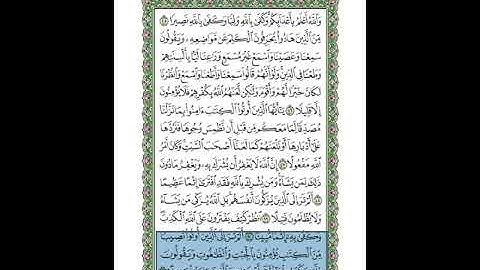 وَٱللَّهُ أَعۡلَمُ بِأَعۡدَآئِكُمۡۚ وَكَفَىٰ بِٱللَّهِ وَلِيّٗا وَكَفَىٰ بِٱللَّهِ نَصِيرٗا ٤٥
مِّنَ ٱلَّذِينَ هَادُواْ يُحَرِّفُونَ ٱلۡكَلِمَ عَن مَّوَاضِعِهِۦ وَيَقُولُونَ
سَمِعۡنَا وَعَصَيۡنَا وَٱسۡمَعۡ غَيۡرَ مُسۡمَعٖ وَرَٰعِنَا لَيَّۢا بِأَلۡسِنَتِهِمۡ
وَطَعۡنٗا فِي ٱلدِّينِۚ وَلَوۡ أَنَّهُمۡ قَالُواْ سَمِعۡنَا وَأَطَعۡنَا وَٱسۡمَعۡ وَٱنظُرۡنَا
لَكَانَ خَيۡرٗا لَّهُمۡ وَأَقۡوَمَ وَلَٰكِن لَّعَنَهُمُ ٱللَّهُ بِكُفۡرِهِمۡ فَلَا يُؤۡمِنُونَ
إِلَّا قَلِيلٗا ٤٦ يَٰٓأَيُّهَا ٱلَّذِينَ أُوتُواْ ٱلۡكِتَٰبَ ءَامِنُواْ بِمَا نَزَّلۡنَا
مُصَدِّقٗا لِّمَا مَعَكُم مِّن قَبۡلِ أَن نَّطۡمِسَ وُجُوهٗا فَنَرُدَّهَا
عَلَىٰٓ أَدۡبَارِهَآ أَوۡ نَلۡعَنَهُمۡ كَمَا لَعَنَّآ أَصۡحَٰبَ ٱلسَّبۡتِۚ وَكَانَ أَمۡرُ
ٱللَّهِ مَفۡعُولًا ٤٧ إِنَّ ٱللَّهَ لَا يَغۡفِرُ أَن يُشۡرَكَ بِهِۦ وَيَغۡفِرُ مَا دُونَ
ذَٰلِكَ لِمَن يَشَآءُۚ وَمَن يُشۡرِكۡ بِٱللَّهِ فَقَدِ ٱفۡتَرَىٰٓ إِثۡمًا عَظِيمًا
٤٨ أَلَمۡ تَرَ إِلَى ٱلَّذِينَ يُزَكُّونَ أَنفُسَهُمۚ بَلِ ٱللَّهُ يُزَكِّي مَن يَشَآءُ
وَلَا يُظۡلَمُونَ فَتِيلًا ٤٩ ٱنظُرۡ كَيۡفَ يَفۡتَرُونَ عَلَى ٱللَّهِ ٱلۡكَذِبَۖ
وَكَفَىٰ بِهِۦٓ إِثۡمٗا مُّبِينًا ٥٠ أَلَمۡ تَرَ إِلَى ٱلَّذِينَ أُوتُواْ نَصِيبٗا
مِّنَ ٱلۡكِتَٰبِ يُؤۡمِنُونَ بِٱلۡجِبۡتِ وَٱلطَّٰغُوتِ وَيَقُولُونَ